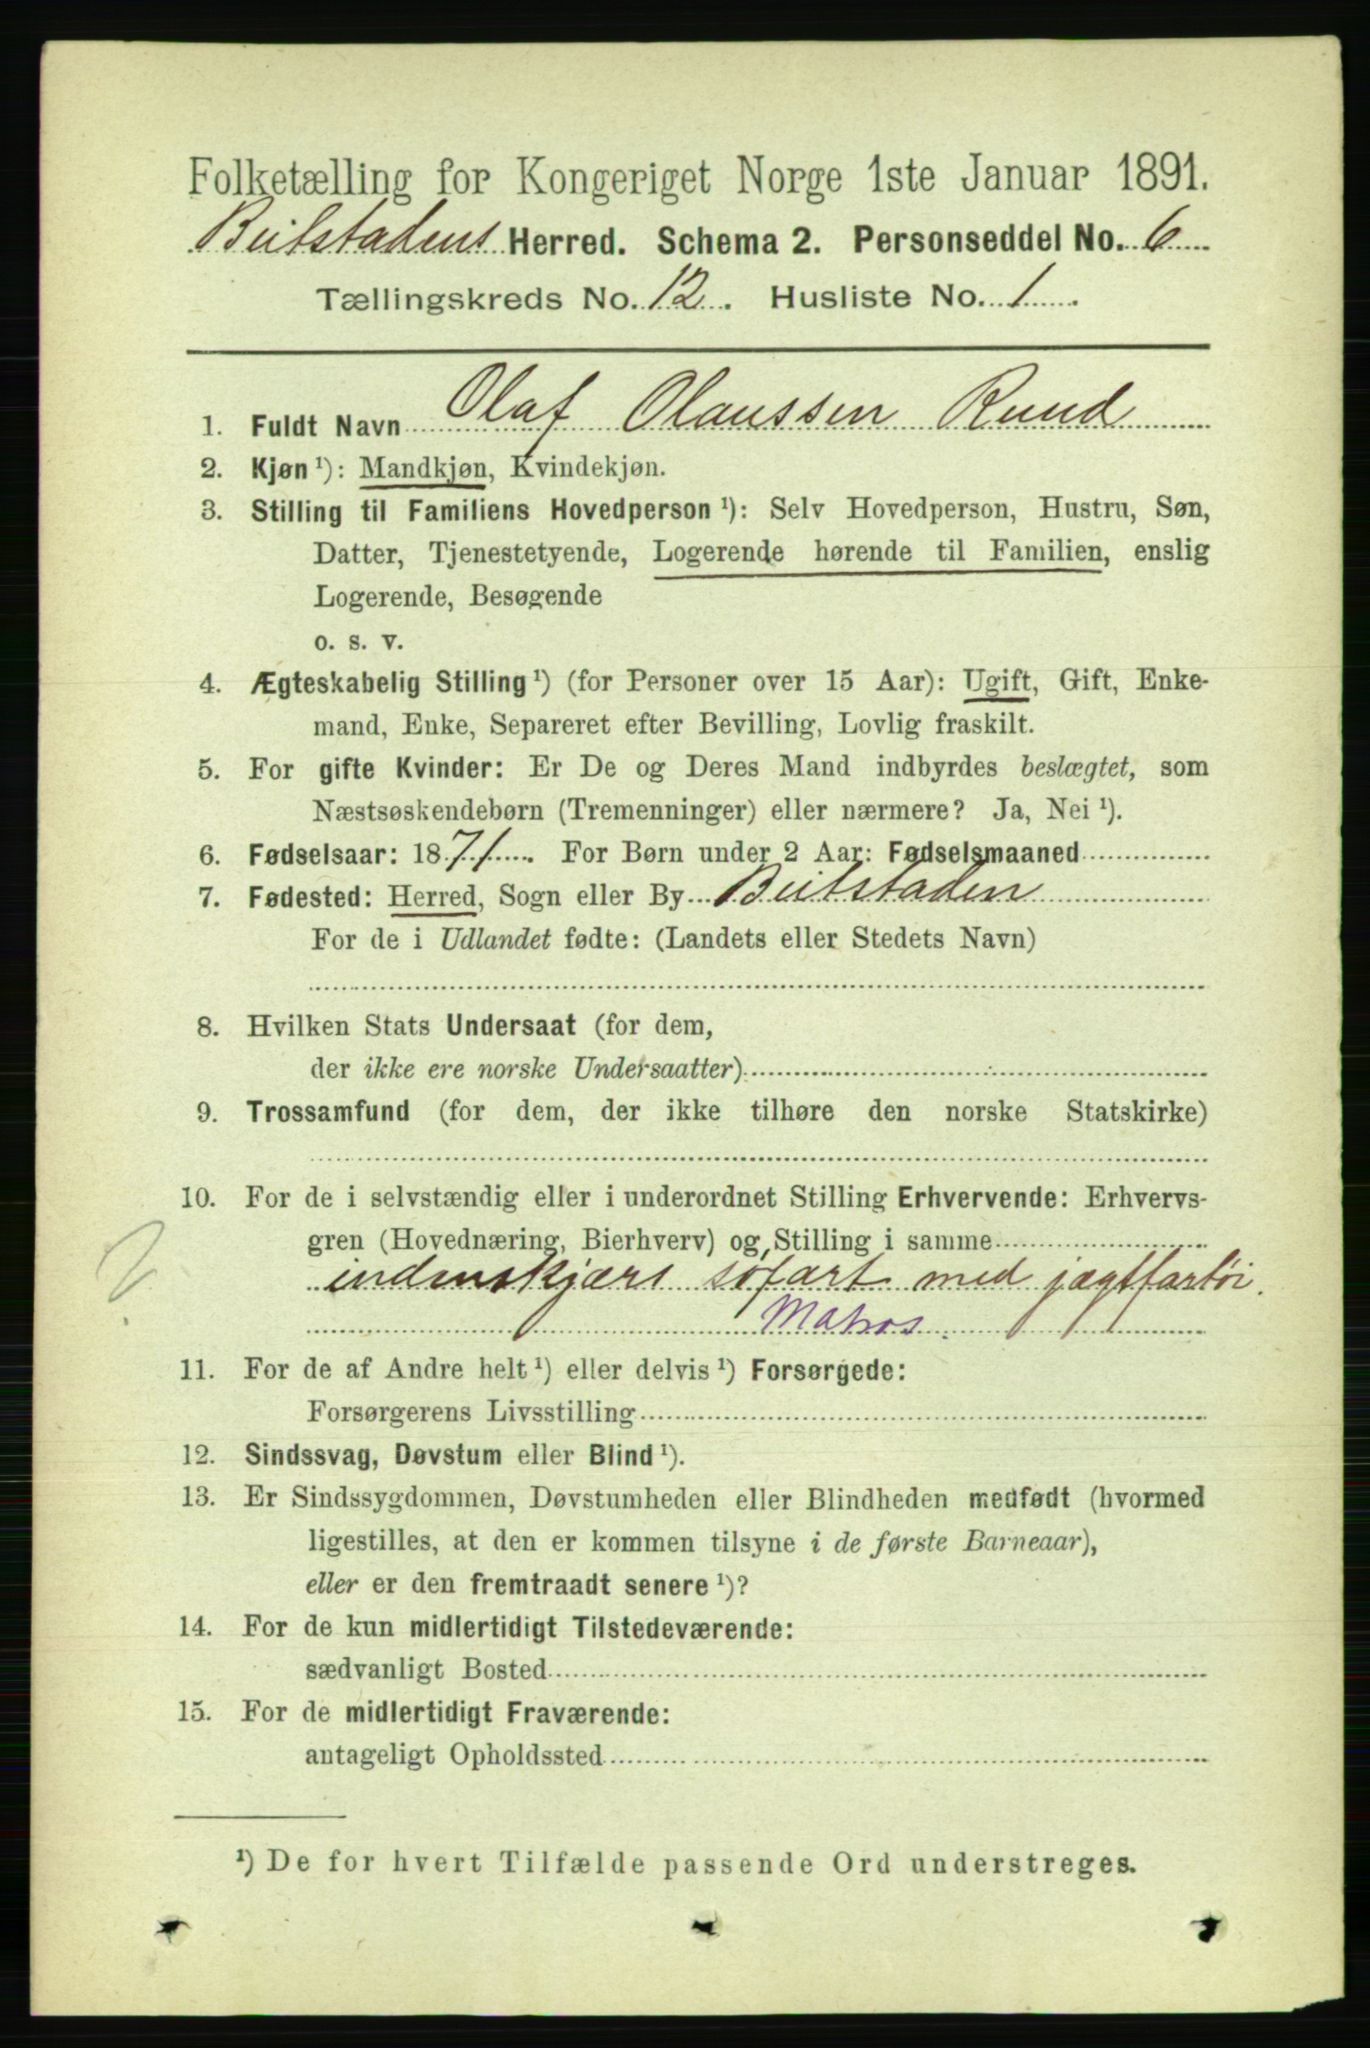 Folketælling for Kongeriget Norge 1ste Januar 1891.
Beitstadens Herred. Schema 2. Personseddel No. 6
Tællingskreds No. 12. Husliste No. 1
1. Fuldt Navn Olaf Olaussen Ruud
2. Kjøn ¹): Mandkjøn, Kvindekjøn.
3. Stilling til Familiens Hovedperson ¹): Selv Hovedperson, Hustru, Søn,
Datter, Tjenestetyende, Logerende hørende til Familien, enslig
Logerende, Besøgende
o. s. v.
4. Ægteskabelig Stilling ¹) (for Personer over 15 Aar): Ugift, Gift, Enke-
mand, Enke, Separeret efter Bevilling, Lovlig fraskilt.
5. For gifte Kvinder: Er De og Deres Mand indbyrdes beslægtet, som
Næstsøskendebørn (Tremenninger) eller nærmere? Ja, Nei ¹).
6. Fødselsaar: 1871. For Børn under 2 Aar: Fødselsmaaned
7. Fødested: Herred, Sogn eller By Beitstaden
For de i Udlandet fødte: (Landets eller Stedets Navn)
8. Hvilken Stats Undersaat (for dem,
der ikke ere norske Undersaatter)
9. Trossamfund (for dem, der ikke tilhøre den norske Statskirke)
10. For de i selvstændig eller i underordnet Stilling Erhvervende: Erhvervs-
gren (Hovednæring, Bierhverv) og Stilling i samme
indenskjærs søfart med jægtfartöi.
Matros.
11. For de af Andre helt ¹) eller delvis ¹) Forsørgede:
Forsørgerens Livsstilling
12. Sindssvag, Døvstum eller Blind ¹).
13. Er Sindssygdommen, Døvstumheden eller Blindheden medfødt (hvormed
ligestilles, at den er kommen tilsyne i de første Barneaar),
eller er den fremtraadt senere ¹)?
14. For de kun midlertidigt Tilstedeværende:
sædvanligt Bosted
15. For de midlertidigt Fraværende:
antageligt Opholdssted
¹) De for hvert Tilfælde passende Ord understreges.